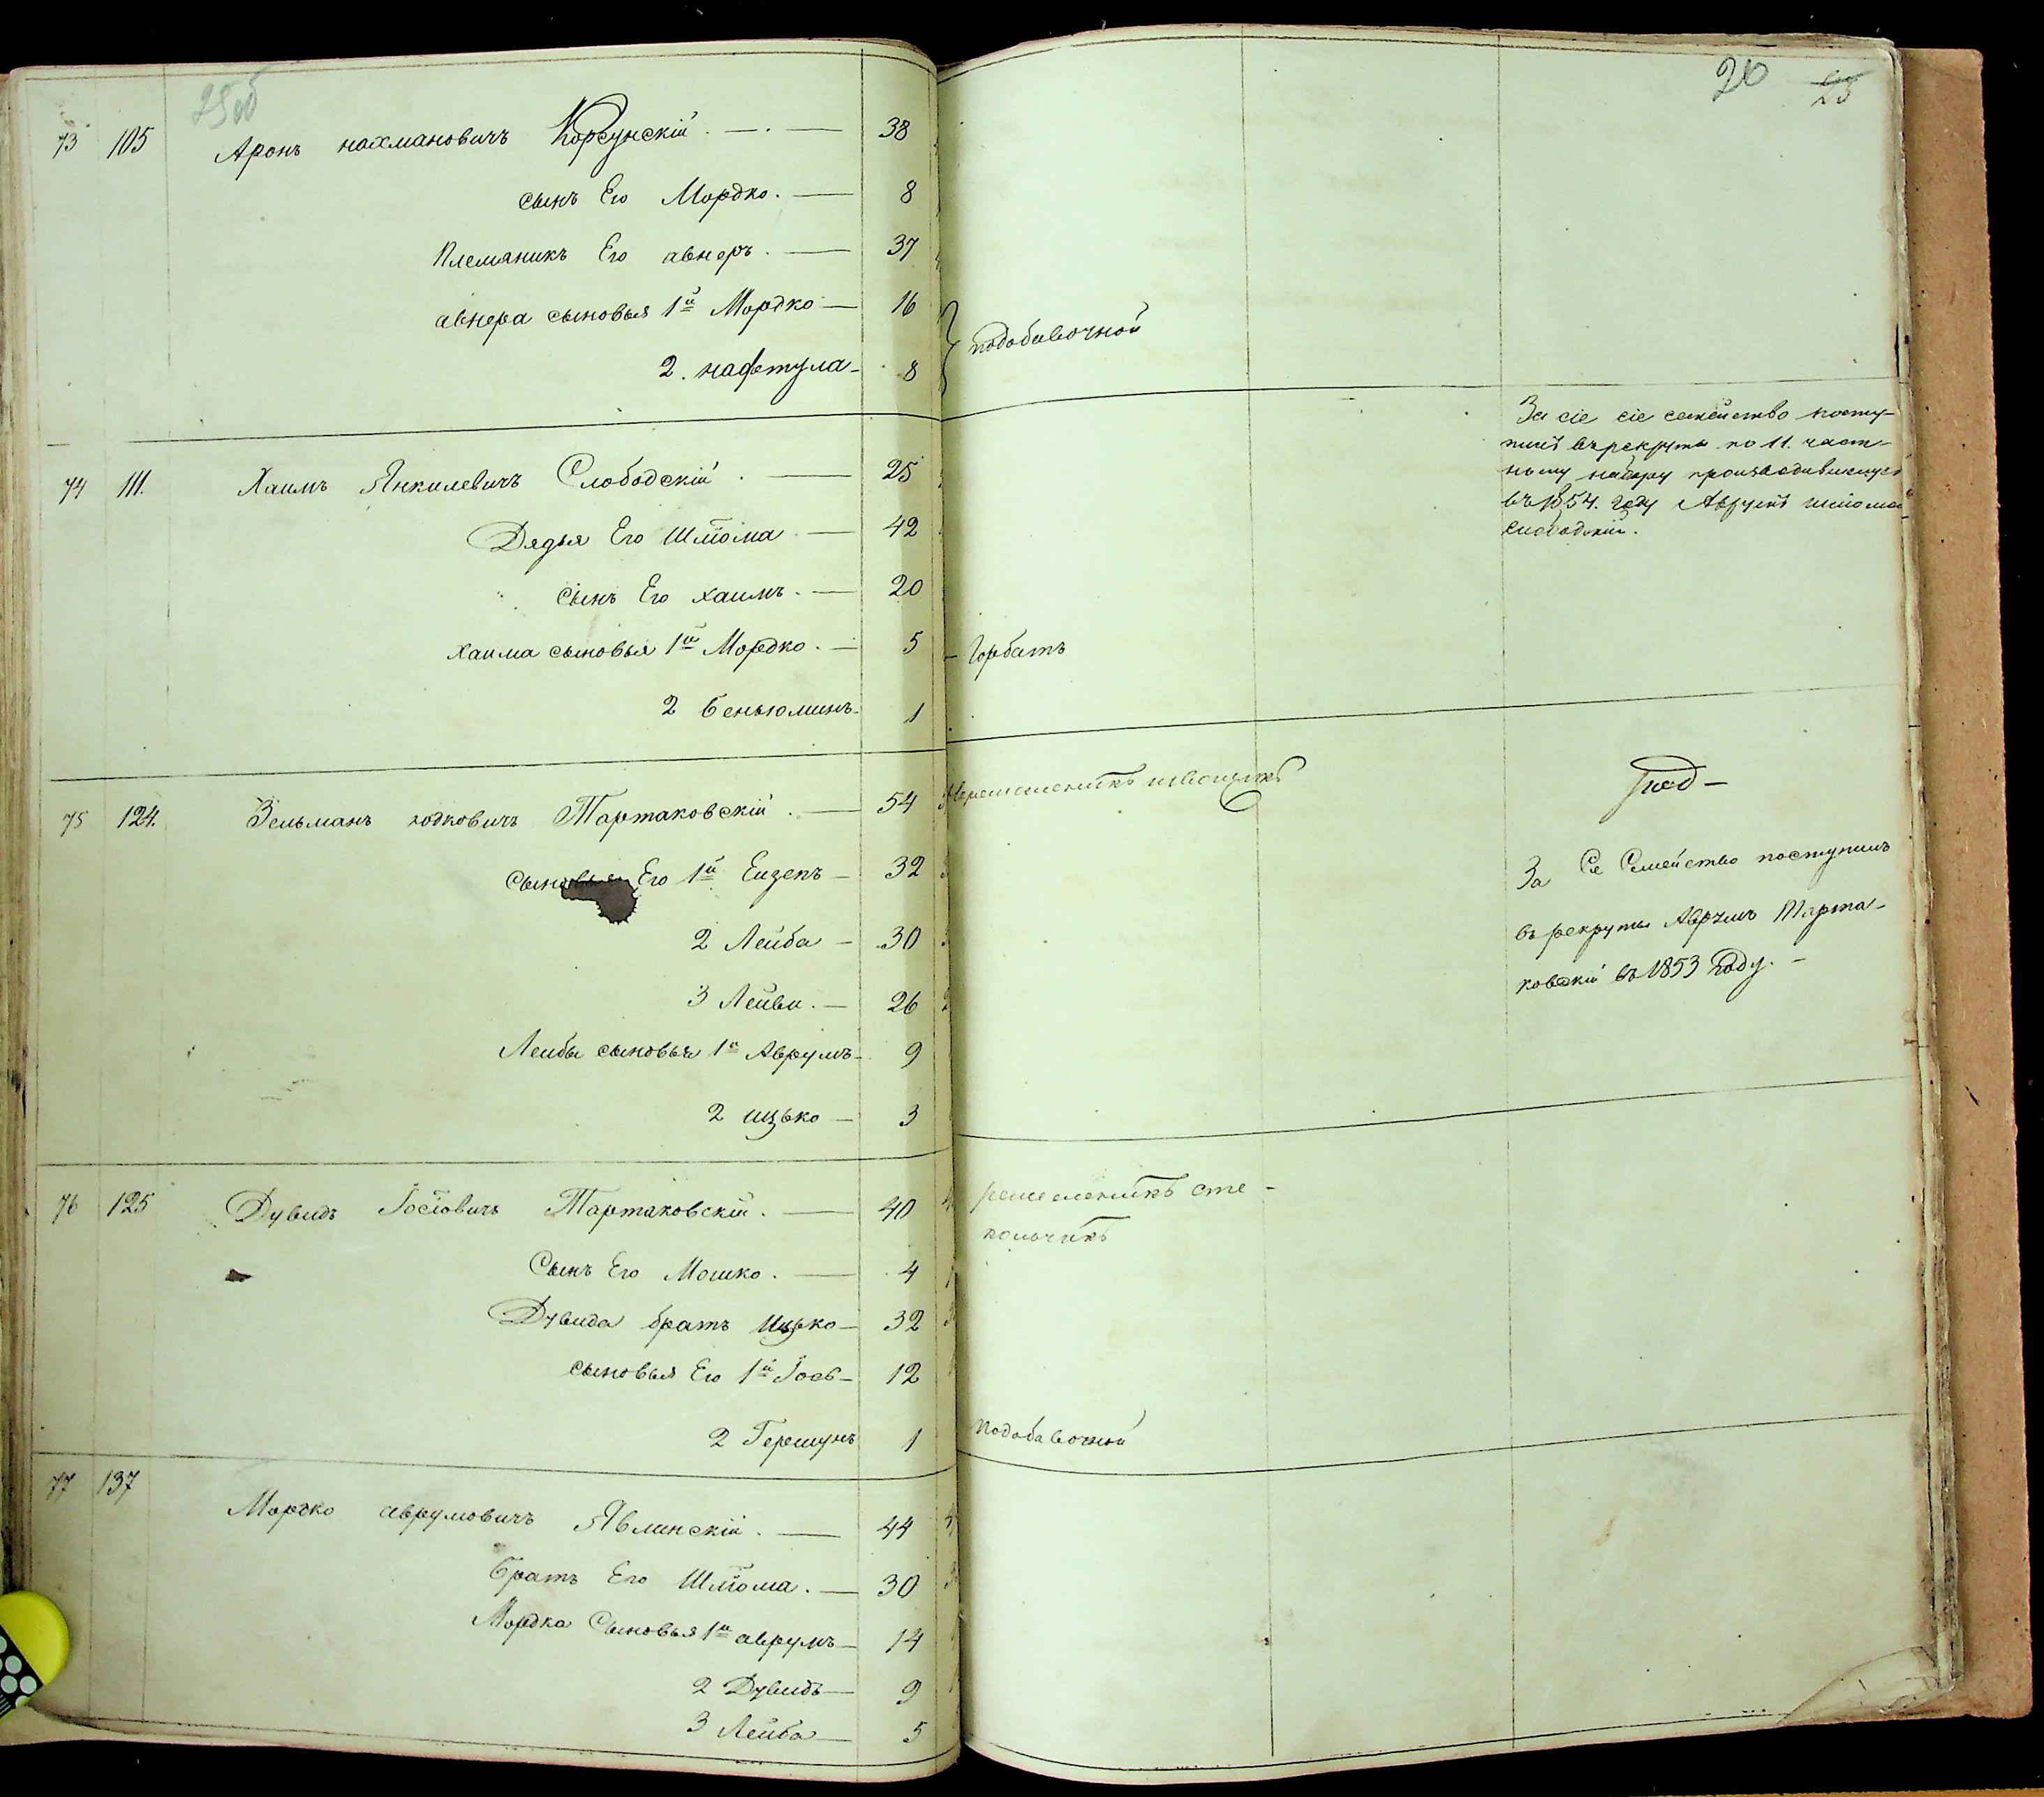 25об
73 105 Аронъ нахмановичъ Корсунскій. — . — 38
сынъ Его Мордко. — 8
Племяникъ Его авнеръ. — 37
авнера сыновья 1й Мордко — 16
2. нафтула - 8
74 111. Хаимъ Янкилевичъ Слободскій. — 25
Дядья Его Шліома — 42
сынъ Его хаимъ. — 20
хаима сыновья 1й Мордко. — 5
2 беньюминъ - 1
75 124. Зельманъ іодковичъ Тартаковскій. — 54
Сыновья Его 1й Еизепъ — 32
2 Лейба — 30
3 Лейви. — 26
Лейбы сыновья 1й Аврумъ - 9
2 ицько — 3
76 125 Дувидъ Іосіовичъ Тартаковскій. — 40
Сынъ Его Мошко. — 4
Дувида братъ Ицько — 32
сыновья Его 1й Іось — 12
2 Гершунъ 1
77 137 Мордко аврумовичъ Явлинскій. — 44
братъ Его Шліома. — 30
Мордка Сыновья 1й аврумъ — 14
2 Дувидъ — 9
3 Лейба — 5
26 25
подобавочной
За сіе сіе семейство посту-
пилъ въ рекруты по 11. част-
ному набору производившуся
въ 1854. году Аврумъ шліома
слободскій.
Горбатъ
ремесленикъ извощикъ
За Се Семейство поступилъ
въ рекруты Аврумъ Тарта-
ковскій въ 1853 Году. -
ремесленикъ сте-
кольчикъ
подобавочной